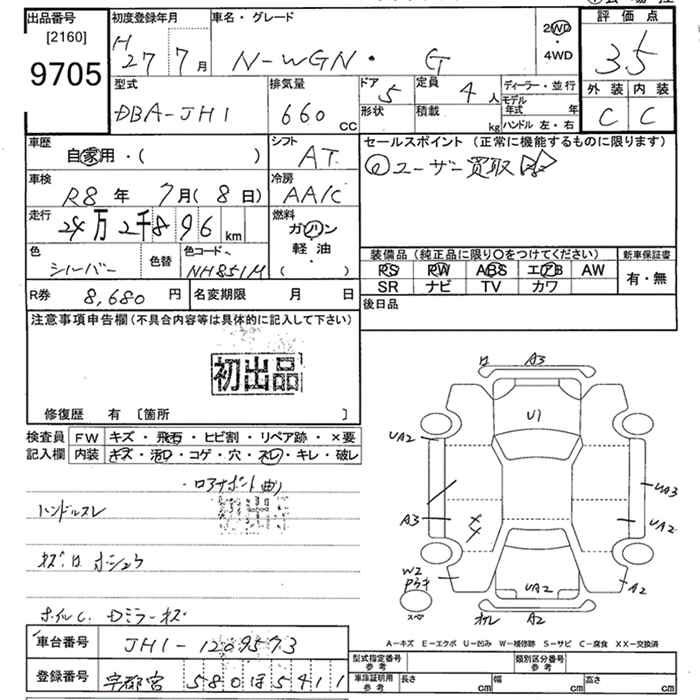 出品番号 初度登録年月 車名・グレード 評価点
[2160]
9705
H27 7月 N-WGN・ G 2WD・4WD 3.5
型式 排気量 ドア 5 定員 4人 ディーラー・並行 外装 内装
DBA-JH1 660 CC 形状 積載 kg モデル年式 年 C C
ハンドル 左・右
車歴 シフト セールスポイント (正常に機能するものに限ります)
自家用・( ) AT ユーザー買取
車検 冷房
R8年 7月(8日) AA/C
走行 燃料
24万2千896km ガソリン
軽油
( ・ )
色 色替 色コード 装備品 (純正品に限り〇をつけてください) 新車保証書
シルバー NH851M RS RW ABS エアB AW 有・無
SR ナビ TV カワ
R券 8,680円 名変期限 月 日 後日品
注意事項申告欄(不具合内容等は具体的に記入して下さい)
初出品
修復歴 有 [箇所 ]
検査員 FW キズ・飛石・ヒビ割・リペア跡・×要
記入欄 内装 キズ・汚レ・コゲ・穴・スレ・キレ・破レ
・ロアサポート曲り
初出品
ハンドルスレ
ホイルC. Dミラーキズ
ロ A3
U1
UA2
UA3
A3 UA2
W2 A2
UA2
スペ A2
A-キズ E-エクボ U-凹み W-補修跡 S-サビ C-腐食 XX-交換済
車台番号 JH1-1209573
登録番号 宇都宮 580ほ5411
型式指定番号 参考 類別区分番号 参考
車庫証明用 参考 長さ cm 幅 cm 高さ cm